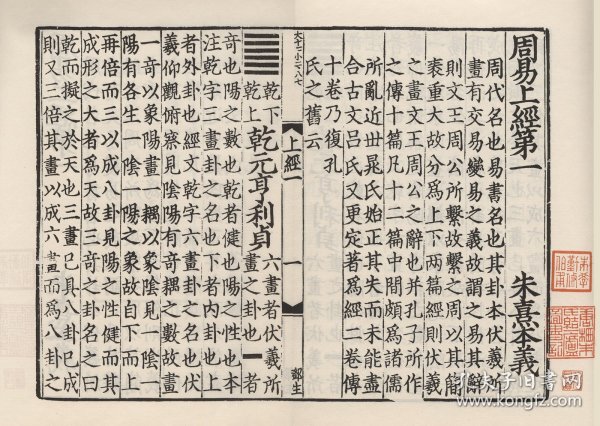 周易上經第一
朱熹本義
周代名也易書名也其卦本伏羲所
畫有交易變易之義故謂之易其辭
則文王周公所繫故繫之周以其簡
袠重大故分爲上下兩篇經則伏羲
之畫文王周公之辭也并孔子所作
之傳十篇凡十二篇中間頗爲諸儒
所亂近世晁氏始正其失而未能盡
合古文呂氏又更定著爲經二卷傳
十卷乃復孔
氏之舊云
上經一
一
乾下
乾上
乾元亨利貞
六畫者伏羲所
畫之卦也一者
奇也陽之數也乾者健也陽之性也本
注乾字三畫卦之名也下者內卦也上
者外卦也經文乾字六畫卦之名也伏
羲仰觀俯察見陰陽有奇耦之數故畫
一奇以象陽畫一耦以象陰見一陰一
陽有各生一陰一陽之象故自下而上
再倍而三以成八卦見陽之性健而其
成形之大者爲天故三奇之卦名之曰
乾而擬之於天也三畫已具八卦已成
則又三倍其畫以成六畫而爲八卦之
孔夫子旧书网
www.kongfz.com